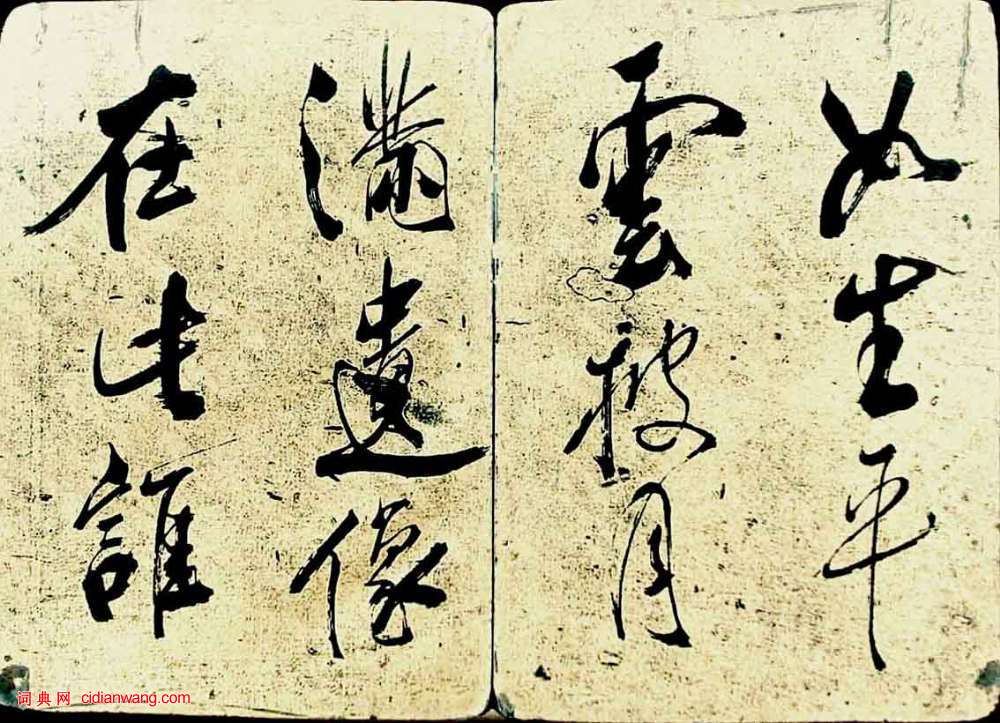 如生平
雲披月
滿遺像
在此誰
词典网 cidianwang.com